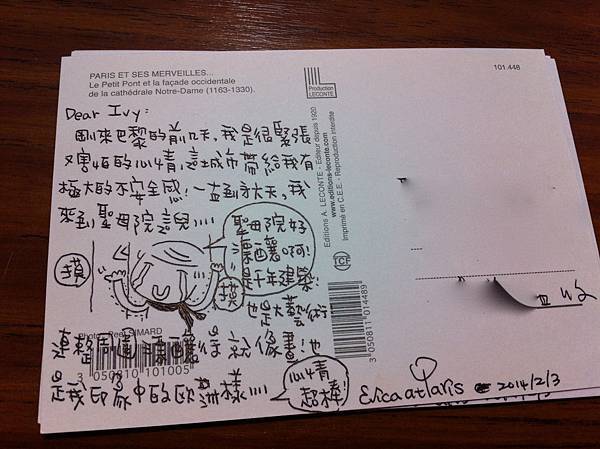 PARIS ET SES MERVEILLES...
Le Petit Pont et la façade occidentale
de la cathédrale Notre-Dame (1163-1330).
Production
LECONTE
101.448
Dear Ivy:
剛來巴黎的前幾天,我是很緊張
又害怕的心情,這城市帶給我有
極大的不安全感!一直到六天,我
來到聖母院這兒....
聖母院好
漂亮啊!
是千年建築!
也是大藝術
摸
摸
連整周遭
漂亮得就像畫!也
是我印象中的歐洲樣....
心情
超棒!
Photo: Peel SIMARD
3 050810 101005
Editions A. LECONTE - Editeur depuis 1920
www.editions-leconte.com
Imprimé en C.E.E. - Reproduction interdite
TCF
3 050811 014489
收
Erica at Paris 2014/2/3